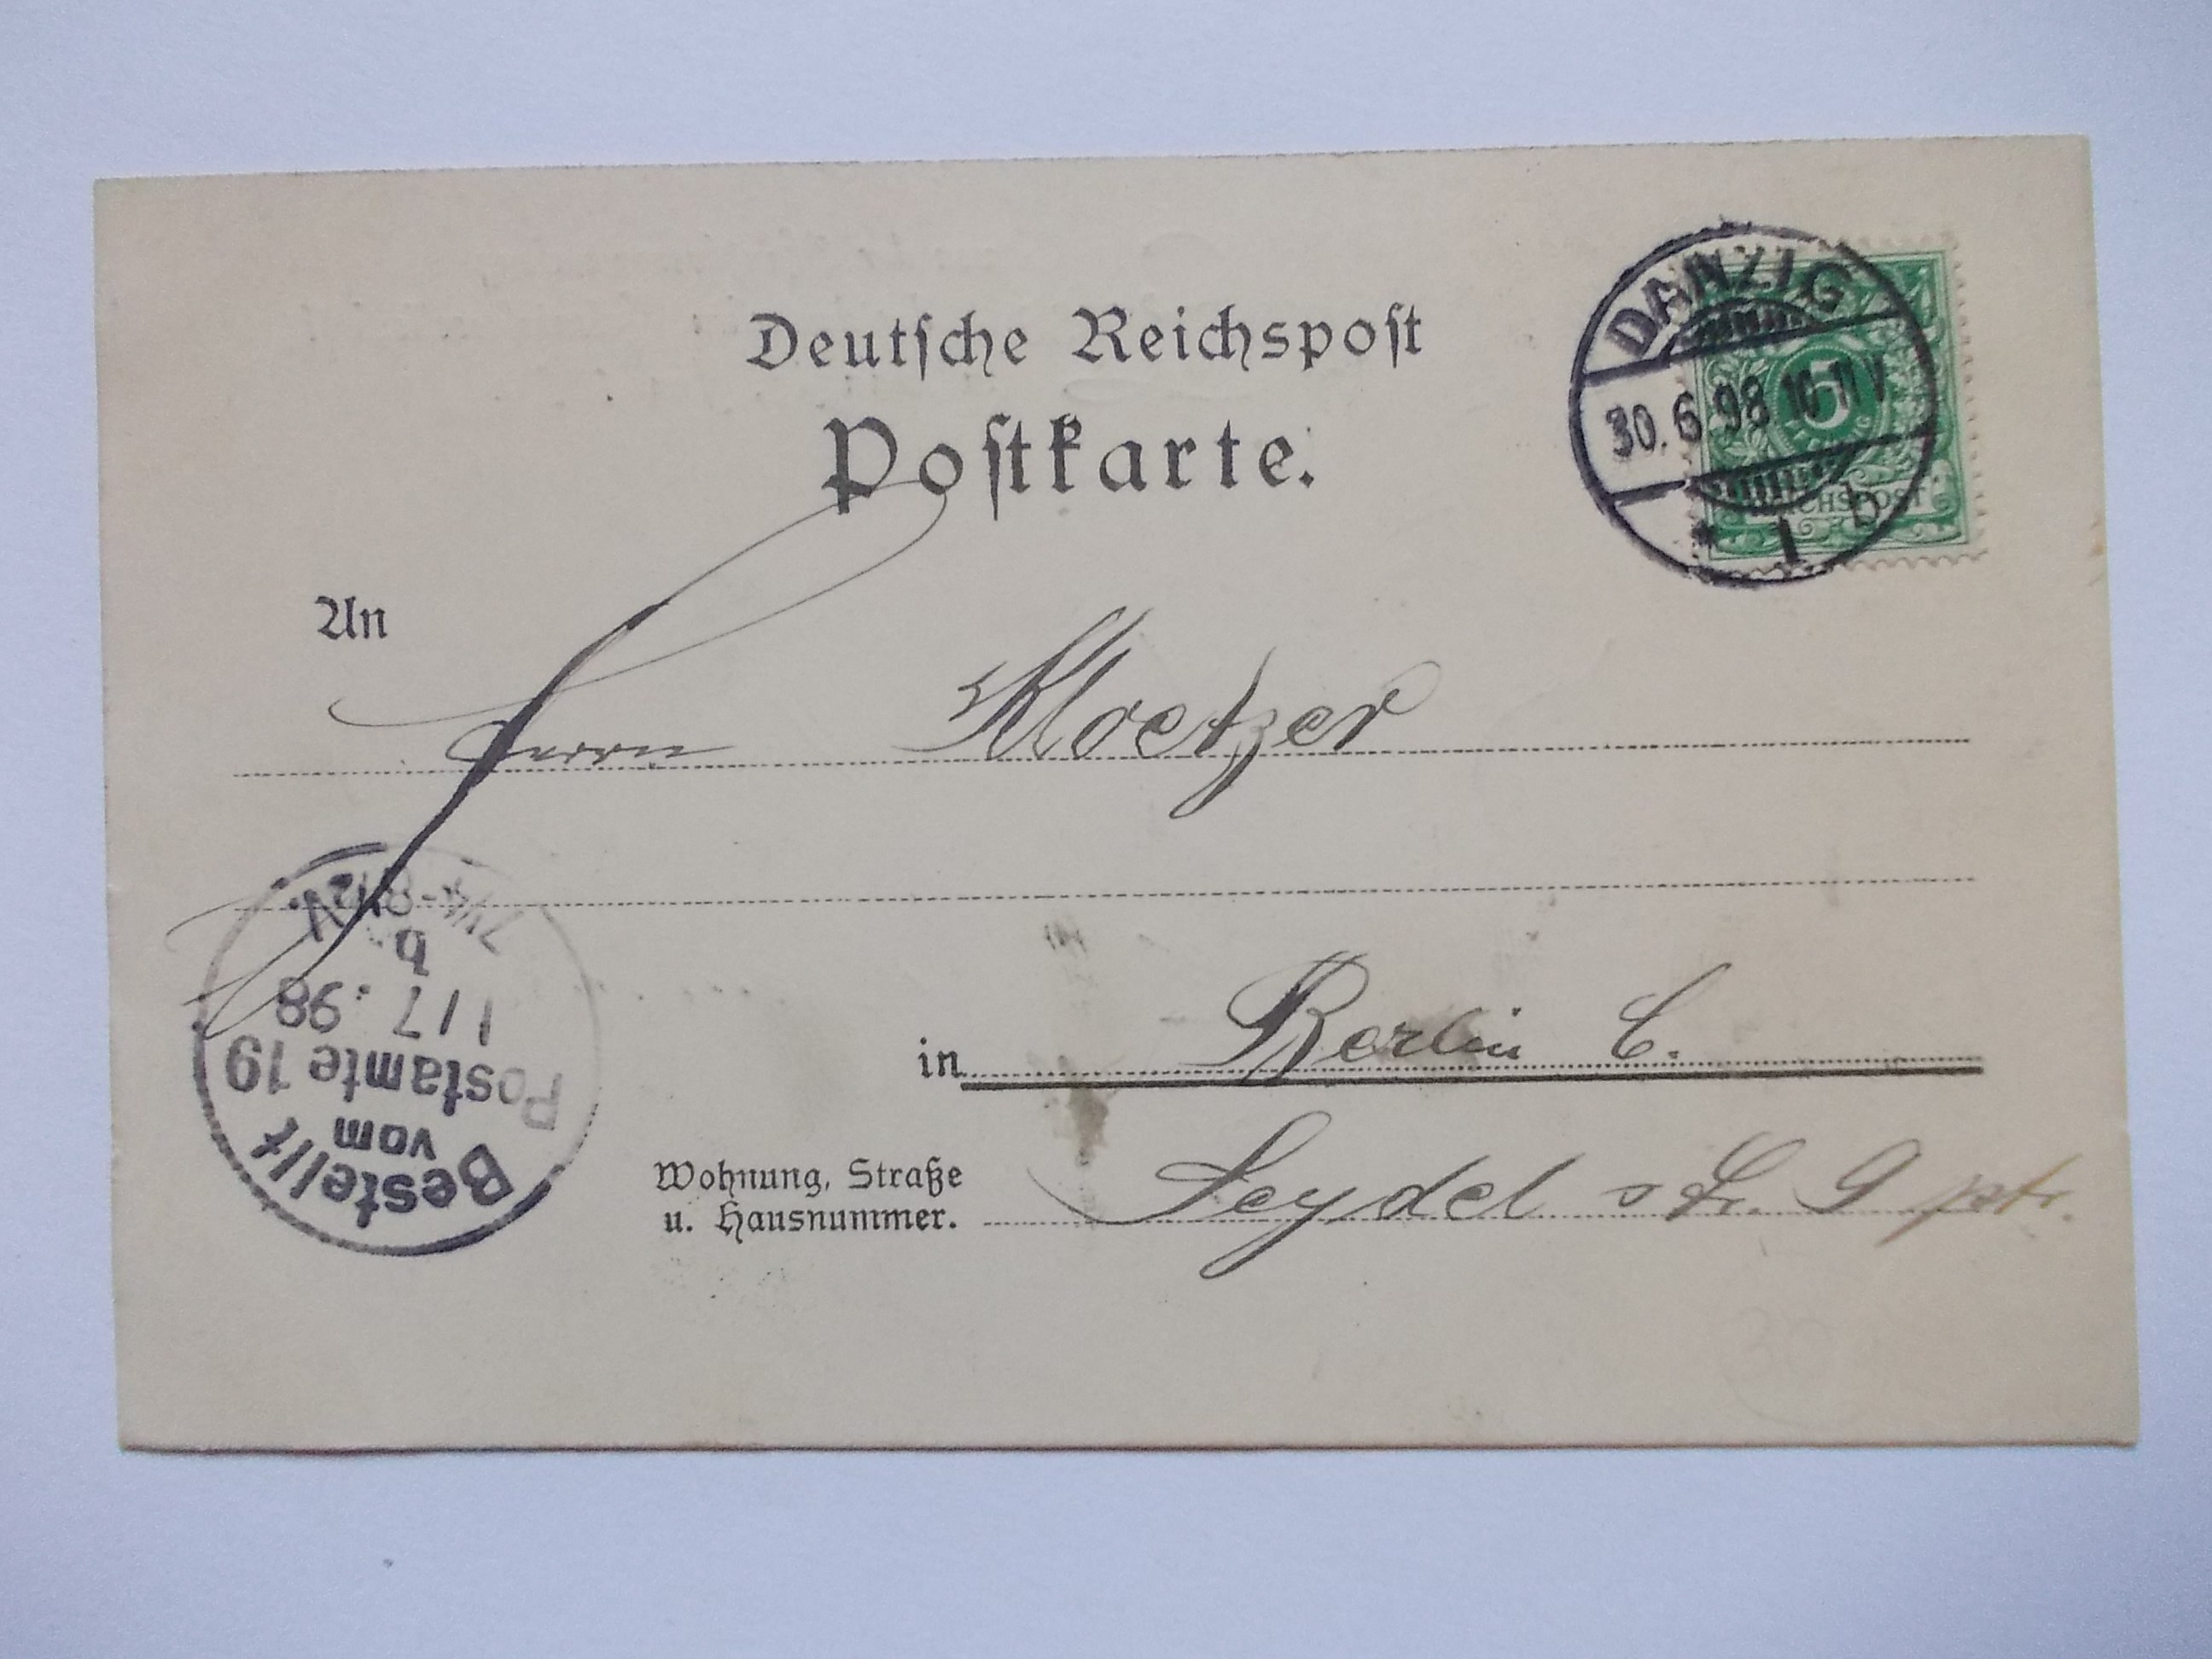 Deutsche Reichspost
Postkarte.
DANZIG
30.6.98 10-11V
* 1 b
5
REICHSPOST
An
Herrn Kloetzer
in Berlin C.
Wohnung, Straße
u. Hausnummer.
Seydel Str. 9 ptr.
Bestellt
vom
Postamte 19
1/7.98
b
7 1/4-8 1/2V.